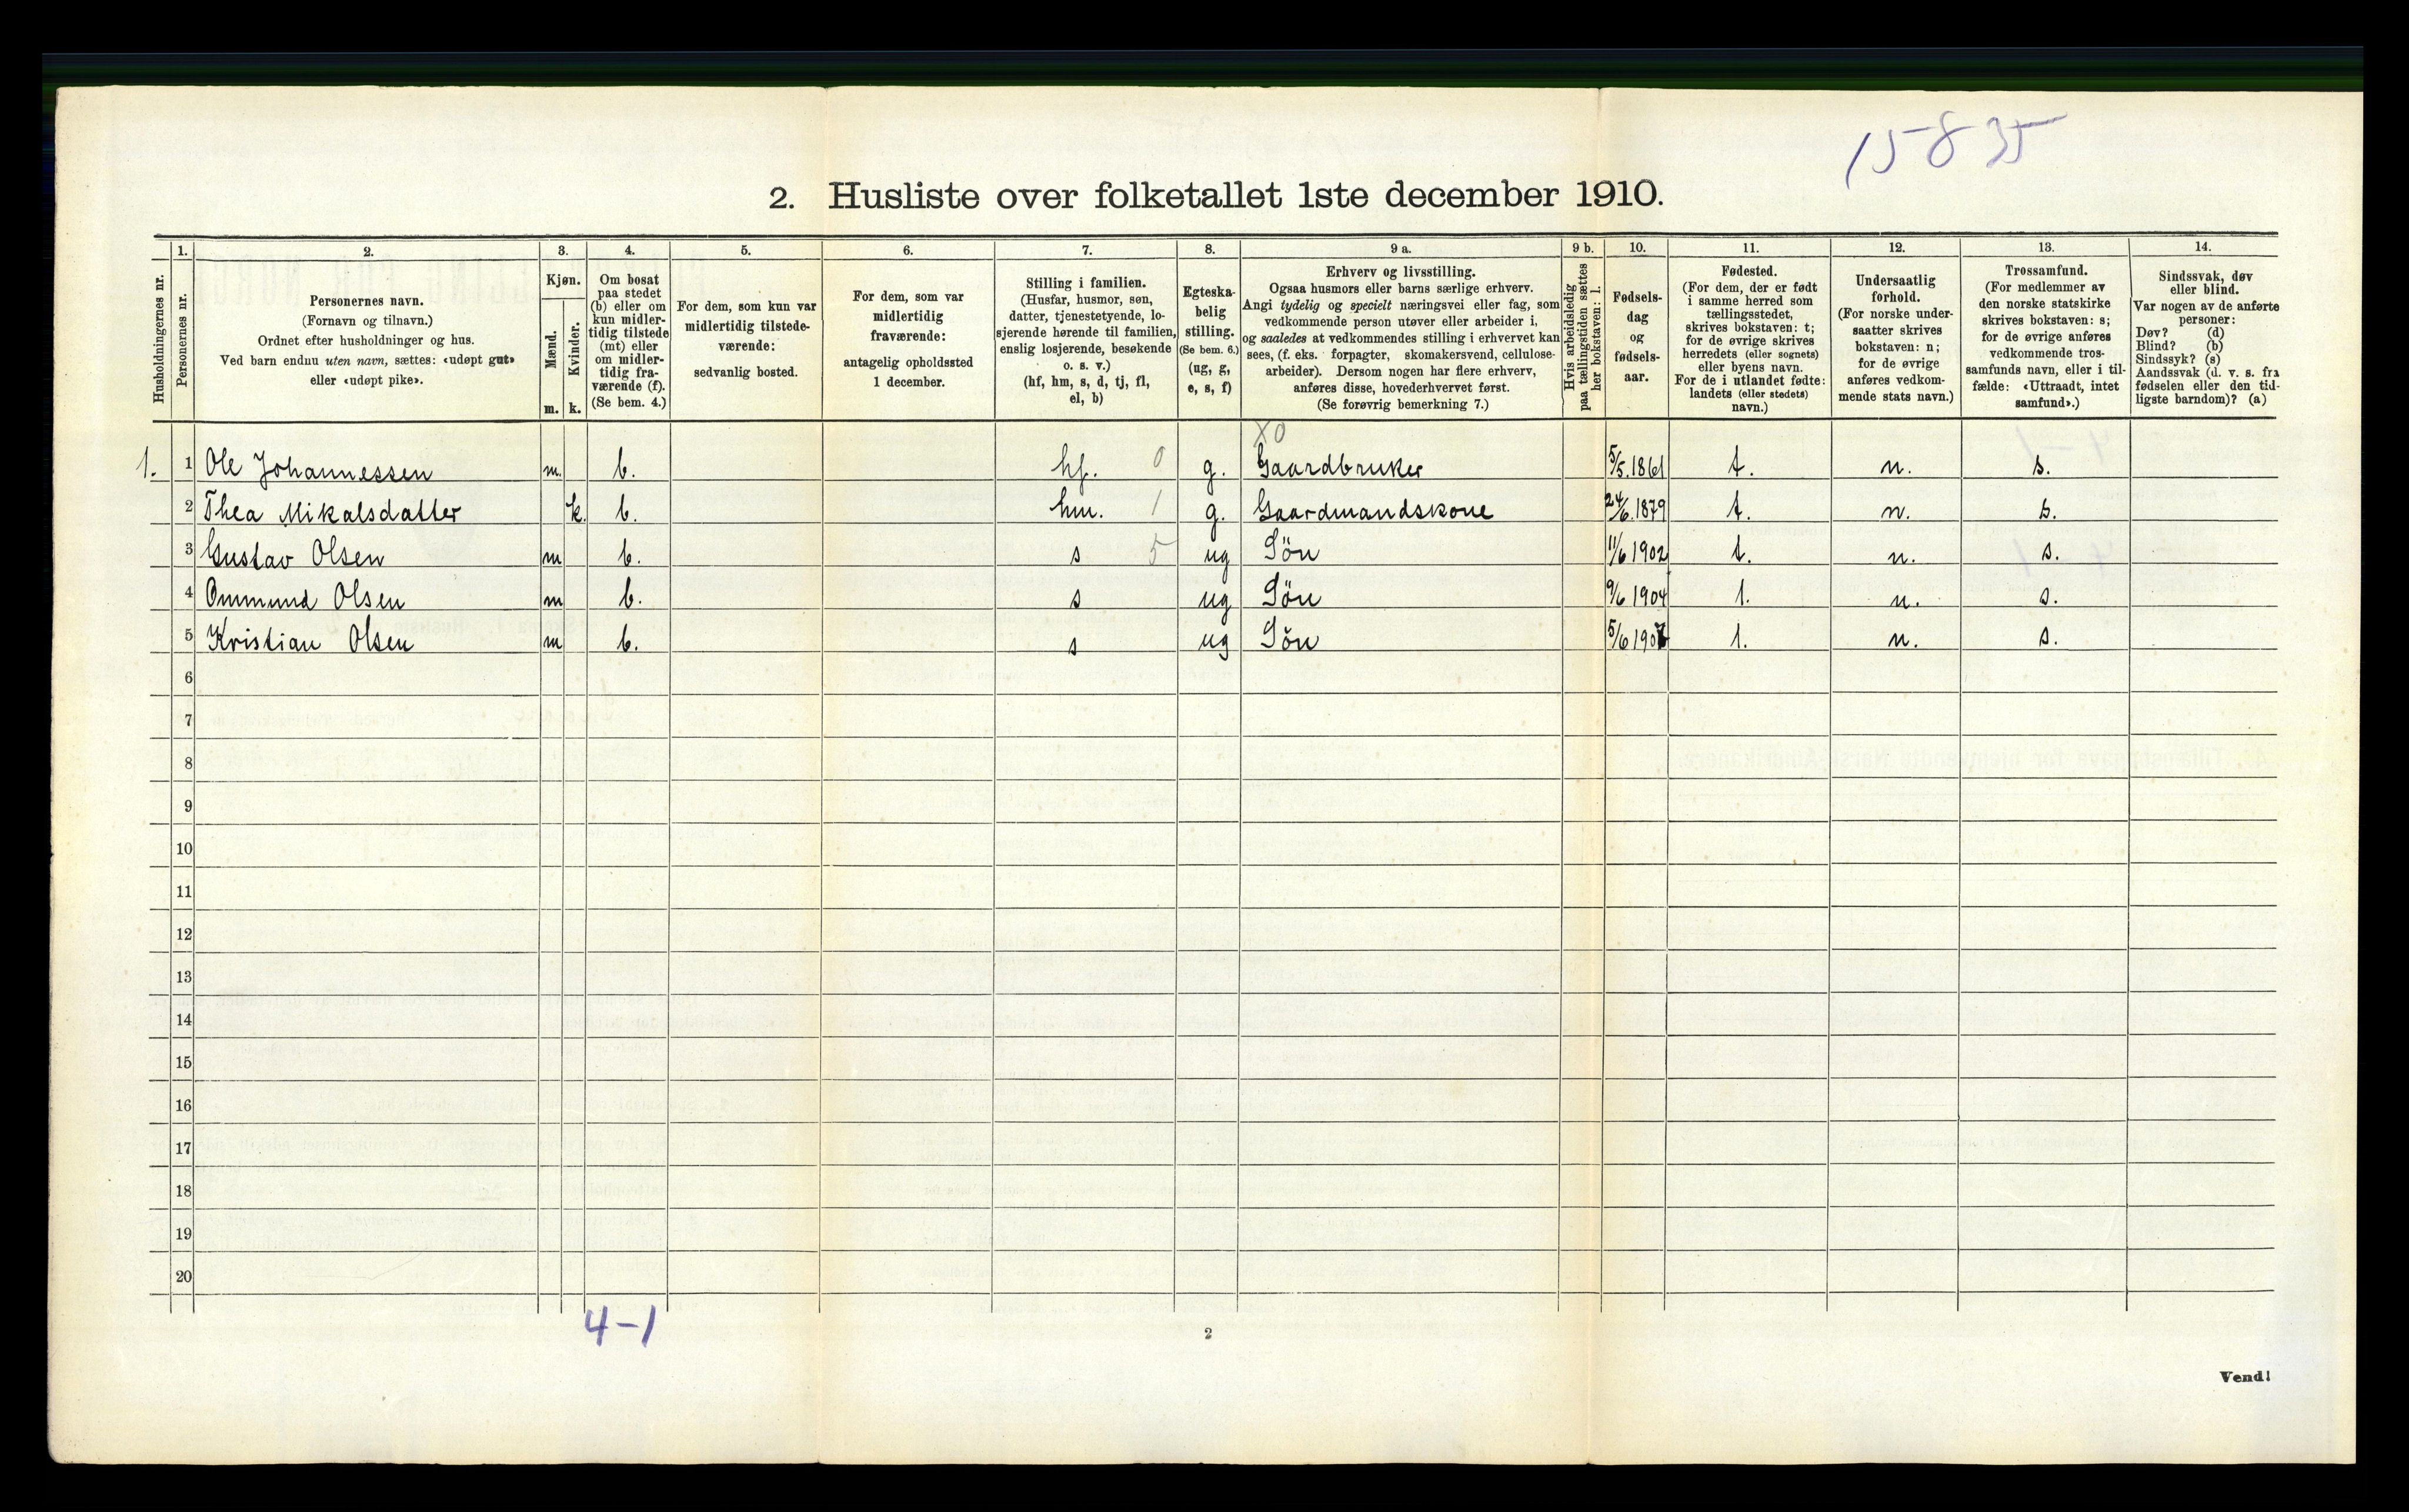 15835
2. Husliste over folketallet 1ste december 1910.
Husholdningernes nr.
1.
Personernes nr.
2.
Personernes navn.
(Fornavn og tilnavn.)
Ordnet efter husholdninger og hus.
Ved barn endnu uten navn, sættes: «udøpt gut»
eller «udøpt pike».
3.
Kjøn.
Mænd.
Kvinder.
m. k.
4.
Om bosat
paa stedet
(b) eller om
kun midler-
tidig tilstede
(mt) eller
om midler-
tidig fra-
værende (f).
(Se bem. 4.)
5.
For dem, som kun var
midlertidig tilstede-
værende:
sedvanlig bosted.
6.
For dem, som var
midlertidig
fraværende:
antagelig opholdssted
1 december.
7.
Stilling i familien.
(Husfar, husmor, søn,
datter, tjenestetyende, lo-
sjerende hørende til familien,
enslig losjerende, besøkende
o. s. v.)
(hf, hm, s, d, tj, fl,
el, b)
8.
Egteska-
belig
stilling.
(Se bem. 6.)
(ug, g,
e, s, f)
9 a.
Erhverv og livsstilling.
Ogsaa husmors eller barns særlige erhverv.
Angi tydelig og specielt næringsvei eller fag, som
vedkommende person utøver eller arbeider i,
og saaledes at vedkommendes stilling i erhvervet kan
sees, (f. eks. forpagter, skomakersvend, cellulose-
arbeider). Dersom nogen har flere erhverv,
anføres disse, hovederhvervet først.
(Se forøvrig bemerkning 7.)
9 b.
Hvis arbeidsledig
paa tællingstiden sættes
her bokstaven: l.
10.
Fødsels-
dag
og
fødsels-
aar.
11.
Fødested.
(For dem, der er født
i samme herred som
tællingsstedet,
skrives bokstaven: t;
for de øvrige skrives
herredets (eller sognets)
eller byens navn.
For de i utlandet fødte:
landets (eller stedets)
navn.)
12.
Undersaatlig
forhold.
(For norske under-
saatter skrives
bokstaven: n;
for de øvrige
anføres vedkom-
mende stats navn.)
13.
Trossamfund.
(For medlemmer av
den norske statskirke
skrives bokstaven: s;
for de øvrige anføres
vedkommende tros-
samfunds navn, eller i til-
fælde: «Uttraadt, intet
samfund».)
14.
Sindssvak, døv
eller blind.
Var nogen av de anførte
personer:
Døv? (d)
Blind? (b)
Sindssyk? (s)
Aandssvak (d. v. s. fra
fødselen eller den tid-
ligste barndom)? (a)
X0
1. 1 Ole Johannessen m. b. hf. 0 g. Gaardbruker 5/5.1861 t. n. s.
2 Thea Mikalsdatter k. b. hm. 1 g. Gaardmandskone 24/6.1879 t. n. s.
3 Gustav Olsen m b. s 5 ug Søn 11/6 1902 t. n. s.
4 Ommund Olsen m b. s ug Søn 9/6 1904 t. n. s.
5 Kristian Olsen m b. s ug Søn 5/6 1907 t. n. s.
6
7
8
9
10
11
12
13
14
15
16
17
18
19
20
4-1
2
Vend!